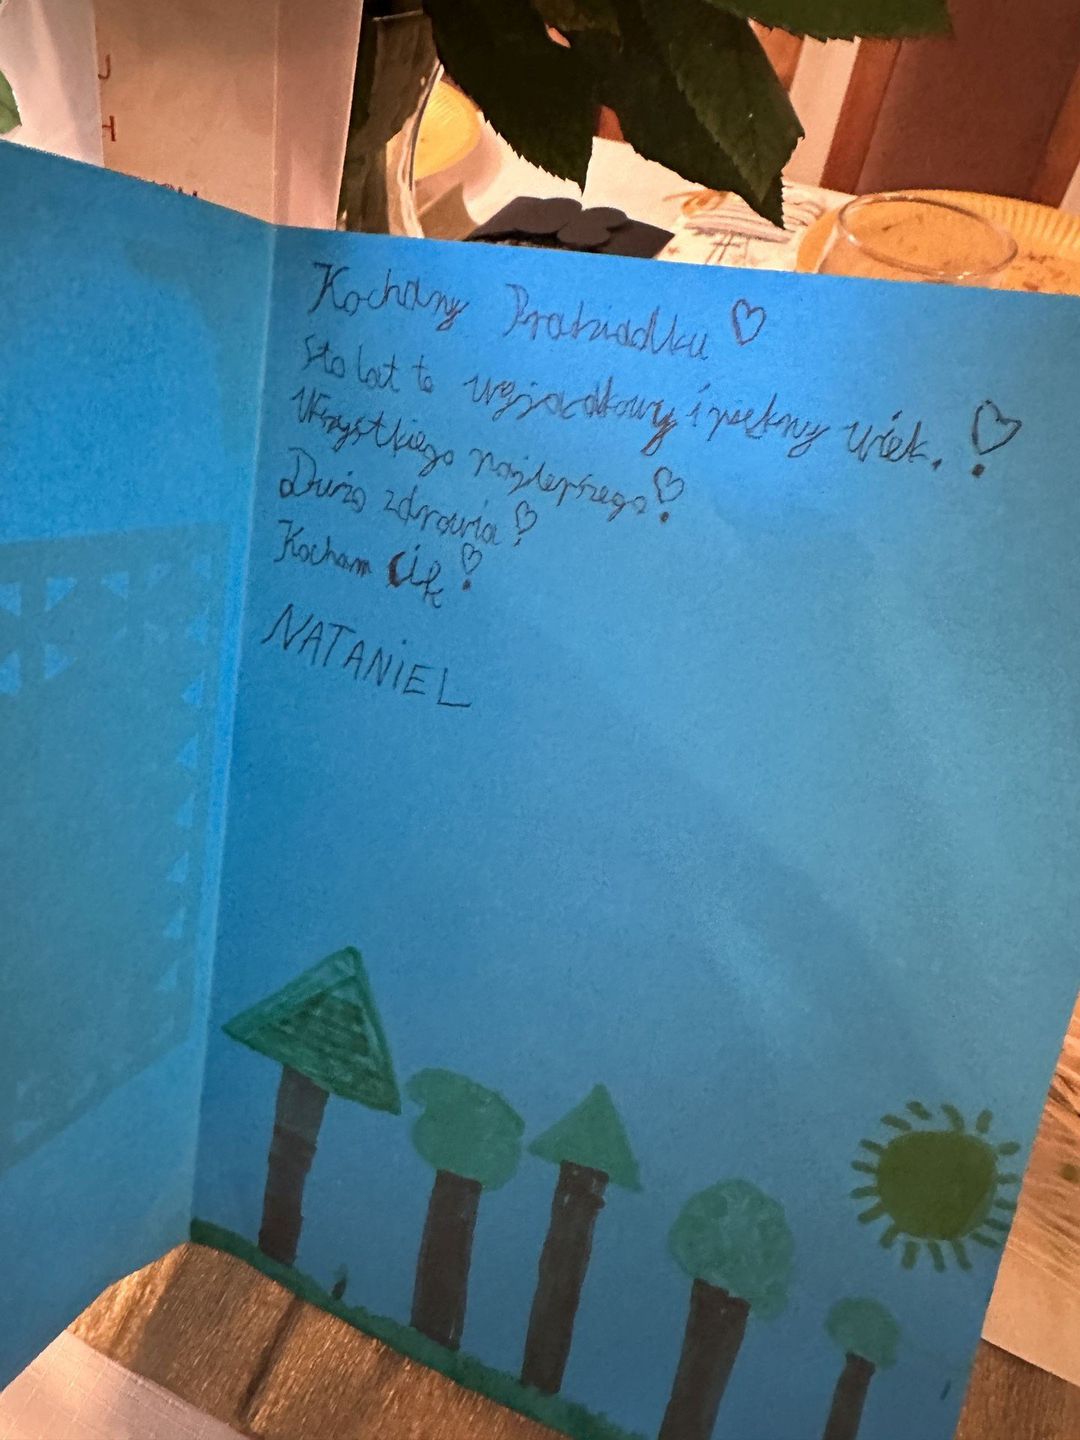 Kochany Pradziadku ♡
sto lat to wyjądkowy i piękny wiek. ♡
Wszystkiego najlepszego♡
Dużo zdrowia♡
Kocham Cię♡
NATANiEL